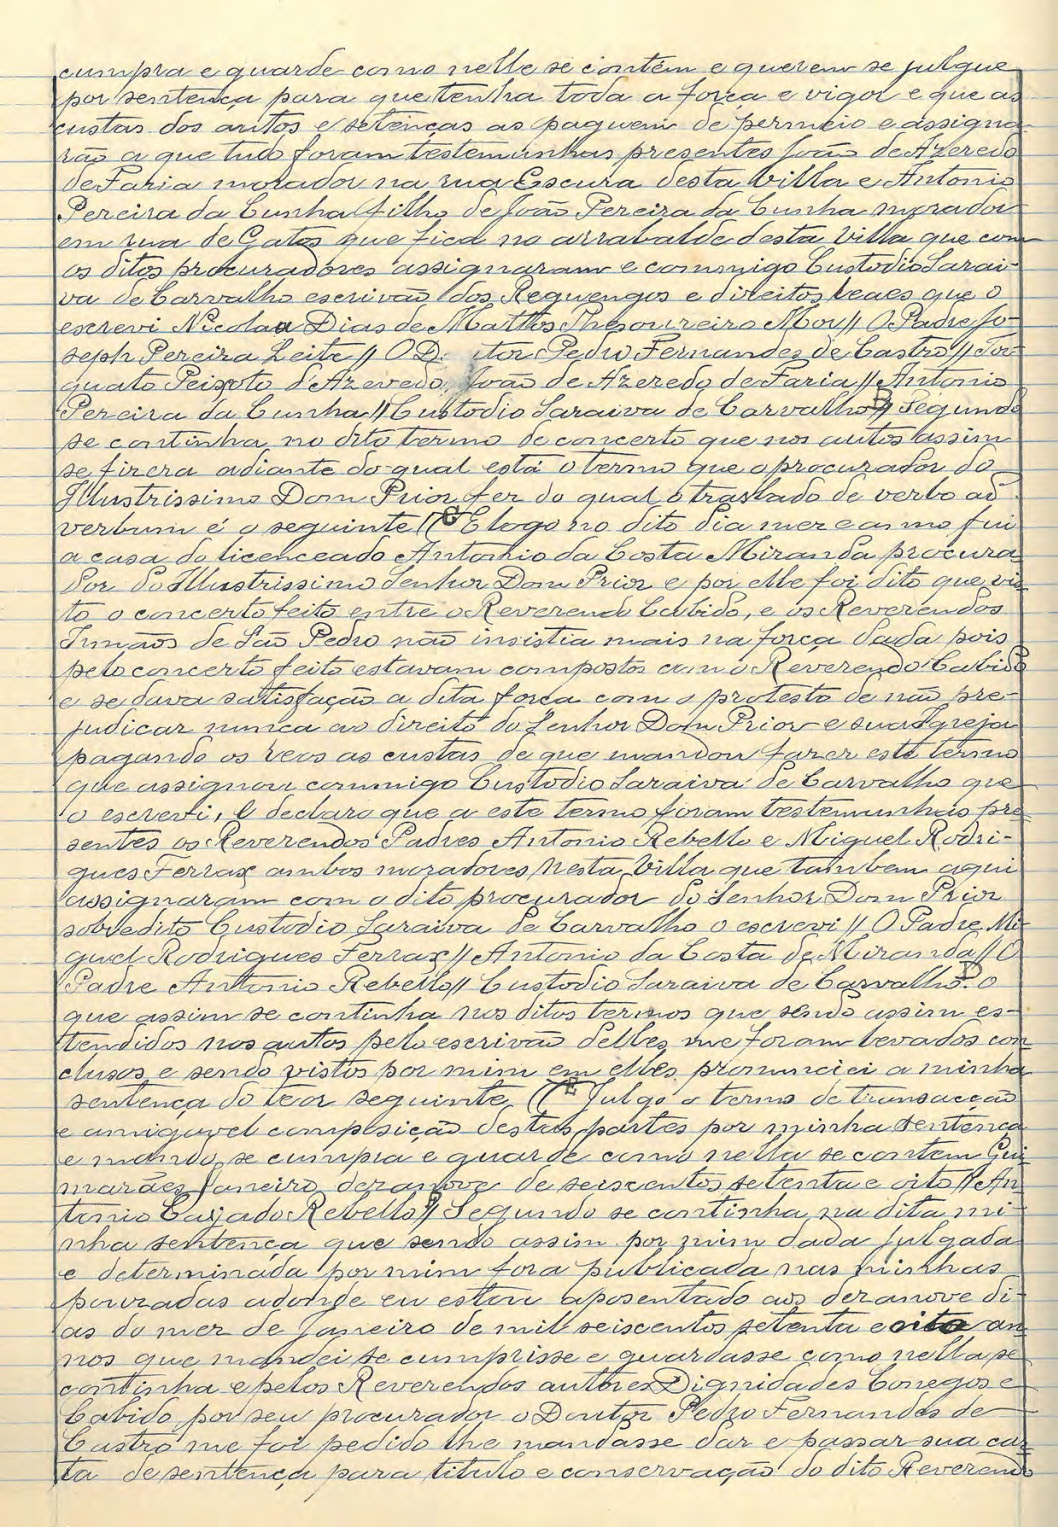 cumpra e guarde como nelle se contém e querem se julgue
por sentença para que tenha toda a força e vigor e que as
custas dos autos e setenças as paguem de permeio e assigna
rão a que tudo foram testemunhas presentes João de Azeredo
de Faria morador na rua Escura desta Villa e Antonio
Pereira da Cunha filho de João Pereira da Cunha morador
em rua de Gatos que fica no arrabalde desta Villa que com
os ditos procuradores assignaram e commigo Custodio Sarai-
va de Carvalho escrivão dos Reguengos e direitos reaes que o
escrevi Nicolau Dias de Mattos Thesoureiro Mor // O Padre Jo-
seph Pereira Leite // O D. tor Pedro Fernandes de Castro // Tor
quato Peixoto d'Azevedo, João de Azeredo de Faria // Antonio
Pereira da Cunha // Custodio Saraiva de Carvalho // Segundo
se continha no dito termo de concerto que nos autos assim
se fizera adiante do qual está o termo que o procurador do
Illustrissimo Dom Prior fez do qual o traslado de verbo ad
verbum é o seguinte // E logo no dito dia mez e anno fui
a casa do licenceado Antonio da Costa Miranda procura
dor do Illustrissimo Senhor Dom Prior e por elle foi dito que vis
to o concerto feito entre o Reverendo Cabido, e os Reverendos
Irmãos de São Pedro não insistia mais na força dada pois
pelo concerto feito estavam compostos com o Reverendo Cabido
e se dava satisfação a dita força com o protesto de não pre-
judicar nunca ao direito do Senhor Dom Prior e sua Igreja
pagando os reos as custas de que mandou fazer este termo
que assignou commigo Custodio Saraiva de Carvalho que
o escrevi, e declaro que a este termo foram testemunhas pre
sentes os Reverendos Padres Antonio Rebello e Miguel Rodri-
gues Ferraz ambos moradores nesta Villa que tambem aqui
assignaram com o dito procurador do Senhor Dom Prior
sobredito Custodio Saraiva de Carvalho o escrevi // O Padre Mi
guel Rodrigues Ferraz // Antonio da Costa de Miranda // O
Padre Antonio Rebello // Custodio Saraiva de Carvalho. O
que assim se continha nos ditos termos que sendo assim es-
tendidos nos autos pelo escrivão delles me foram levados con
clusos e sendo vistos por mim em elles pronunciei a minha
sentença do teor seguinte // Julgo o termo de transacção
e amigavel composição destas partes por minha sentença
e mando se cumpra e guarde como nella se contem Gui
marães Janeiro dezanove de seiscentos setenta e oito // An
tonio Cazado Rebello // Segundo se continha na dita mi-
nha sentença que sendo assim por mim dada julgada
e determinada por mim fora publicada nas minhas
pouzadas adonde eu estou aposentado aos dezanove di-
as do mez de Janeiro de mil seiscentos setenta e oito an
nos que mandei se cumprisse e guardasse como nella se
continha e pelos Reverendos authores Dignidades Conegos e
Cabido por seu procurador o Doutor Pedro Fernandes de
Castro me foi pedido lhe mandasse dar e passar sua car
ta de sentença para titulo e conservação do dito Reverendo